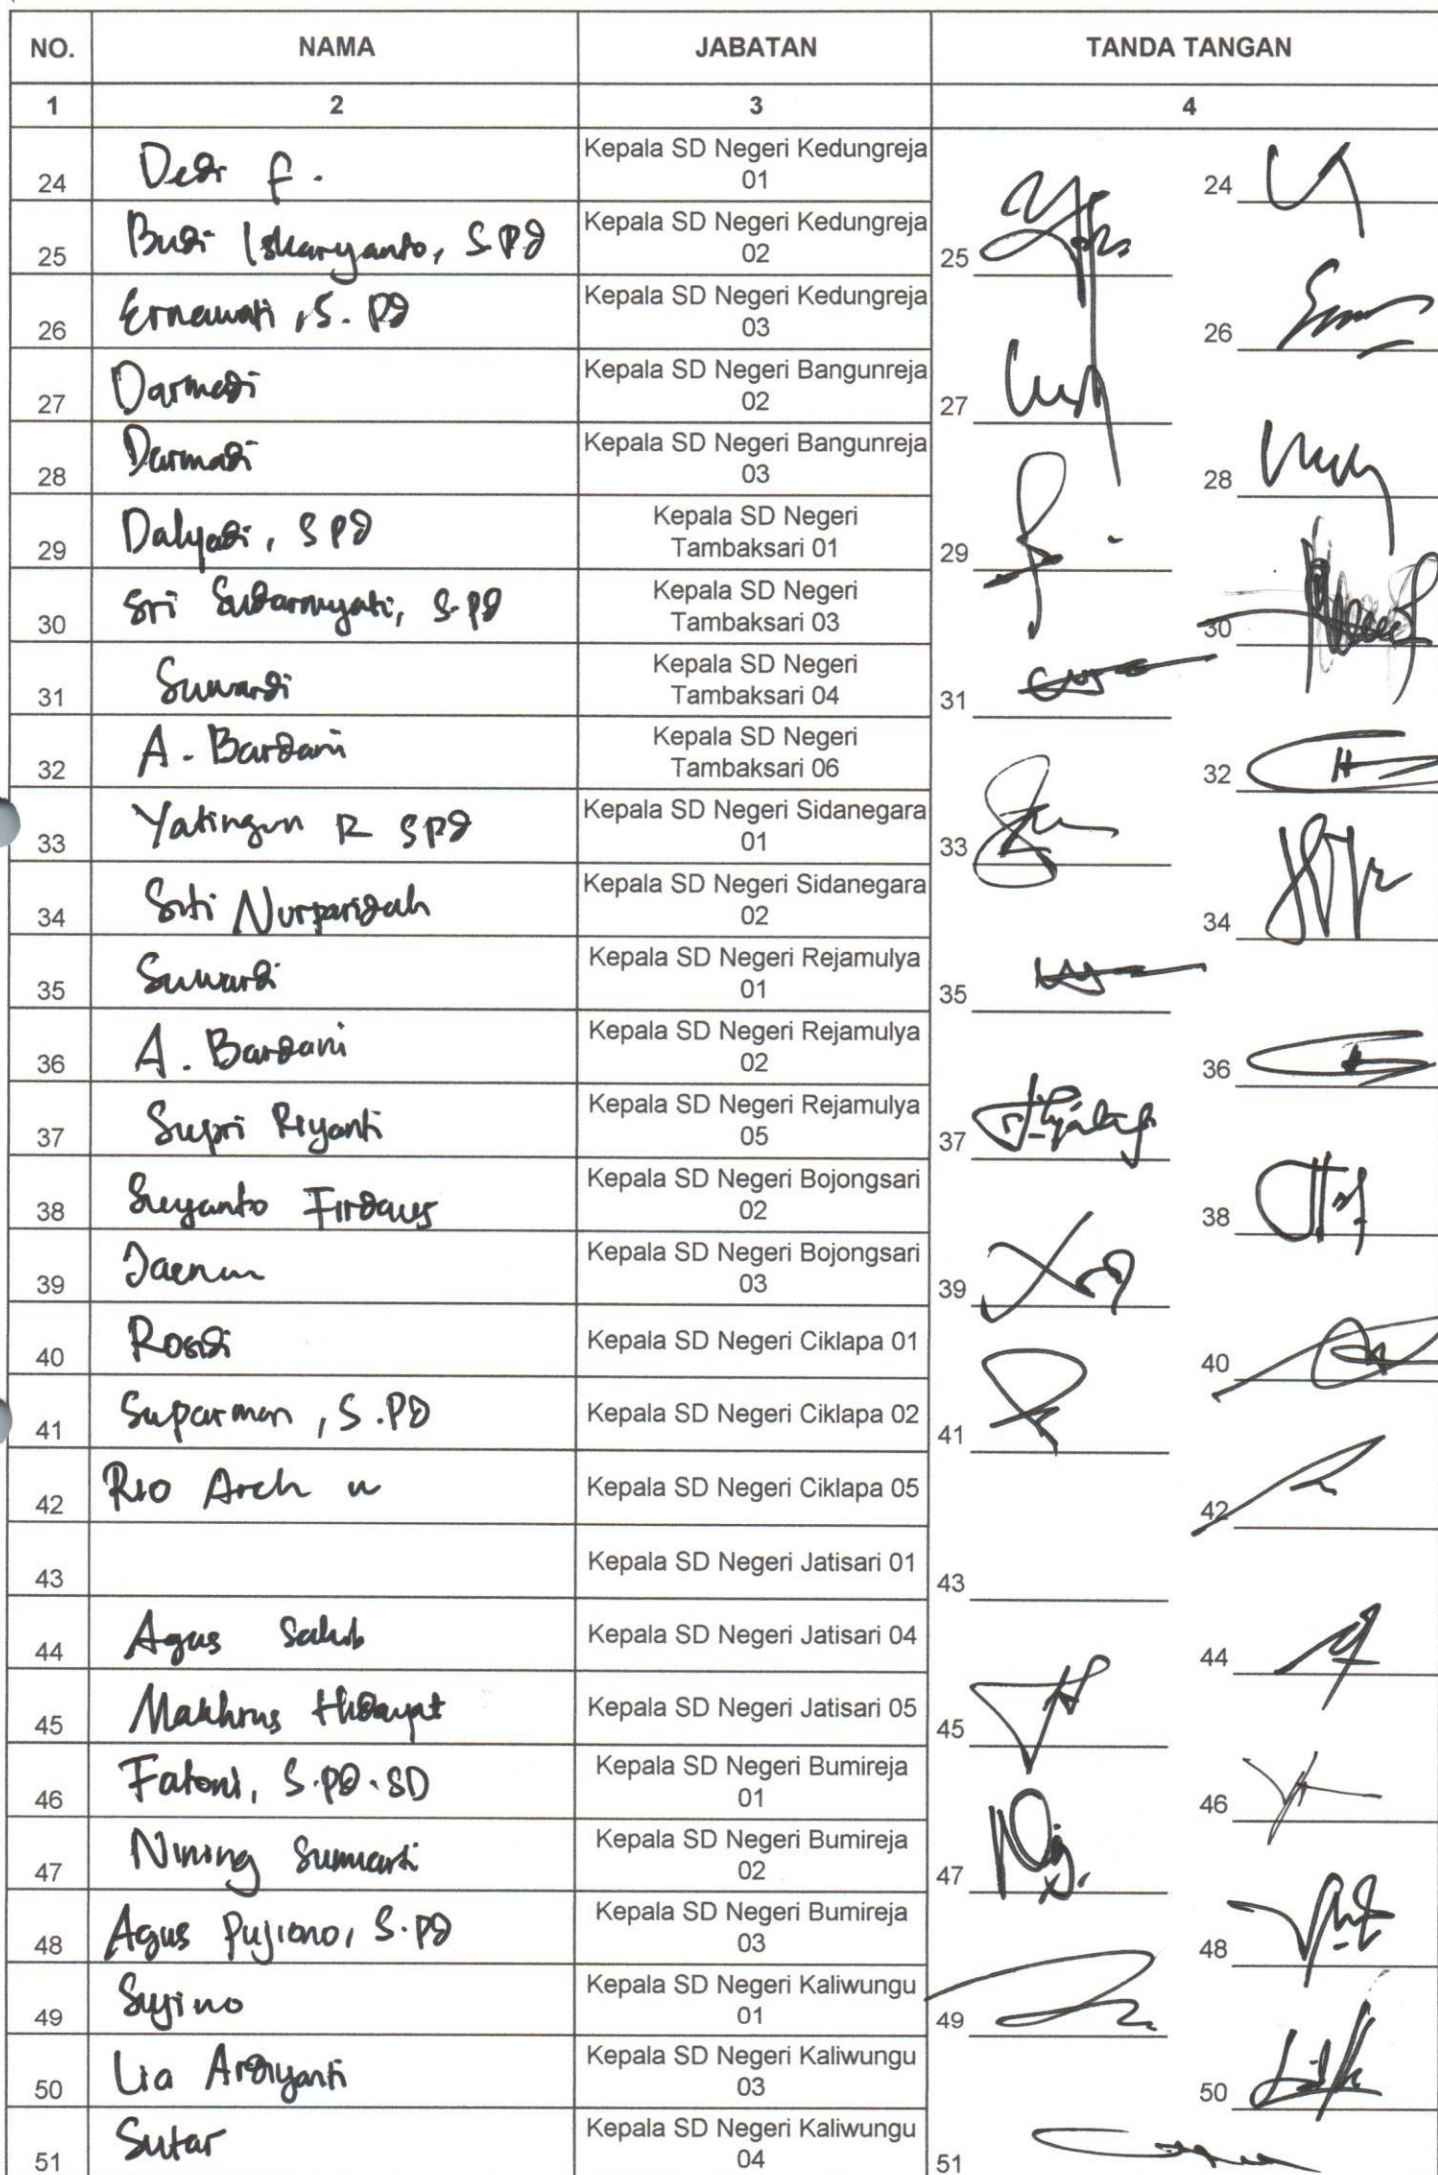 NO. NAMA JABATAN TANDA TANGAN
1 2 3 4
24 Dedi F. Kepala SD Negeri Kedungreja 01 24
25 Budi Iskaryanto, S.Pd Kepala SD Negeri Kedungreja 02 25
26 Ernawati, S.Pd Kepala SD Negeri Kedungreja 03 26
27 Darmadi Kepala SD Negeri Bangunreja 02 27
28 Darmadi Kepala SD Negeri Bangunreja 03 28
29 Dalyadi, S Pd Kepala SD Negeri Tambaksari 01 29
30 Sri Sudarmyati, S.Pd Kepala SD Negeri Tambaksari 03 30
31 Suwardi Kepala SD Negeri Tambaksari 04 31
32 A. Bardani Kepala SD Negeri Tambaksari 06 32
33 Yatingun R SPd Kepala SD Negeri Sidanegara 01 33
34 Siti Nurparidah Kepala SD Negeri Sidanegara 02 34
35 Suwardi Kepala SD Negeri Rejamulya 01 35
36 A. Bardani Kepala SD Negeri Rejamulya 02 36
37 Supri Riyanti Kepala SD Negeri Rejamulya 05 37
38 Suyanto Firdaus Kepala SD Negeri Bojongsari 02 38
39 Kepala SD Negeri Bojongsari 03 39
40 Rosidi Kepala SD Negeri Ciklapa 01 40
41 Suparman, S.Pd Kepala SD Negeri Ciklapa 02 41
42 Rio Arch w Kepala SD Negeri Ciklapa 05 42
43 Kepala SD Negeri Jatisari 01 43
44 Agus Kepala SD Negeri Jatisari 04 44
45 Makhrus Hidayat Kepala SD Negeri Jatisari 05 45
46 Fatoni, S.Pd.SD Kepala SD Negeri Bumireja 01 46
47 Nining Sumiarti Kepala SD Negeri Bumireja 02 47
48 Agus Pujiono, S.Pd Kepala SD Negeri Bumireja 03 48
49 Sujino Kepala SD Negeri Kaliwungu 01 49
50 Lia Ardiyanti Kepala SD Negeri Kaliwungu 03 50
51 Sutar Kepala SD Negeri Kaliwungu 04 51